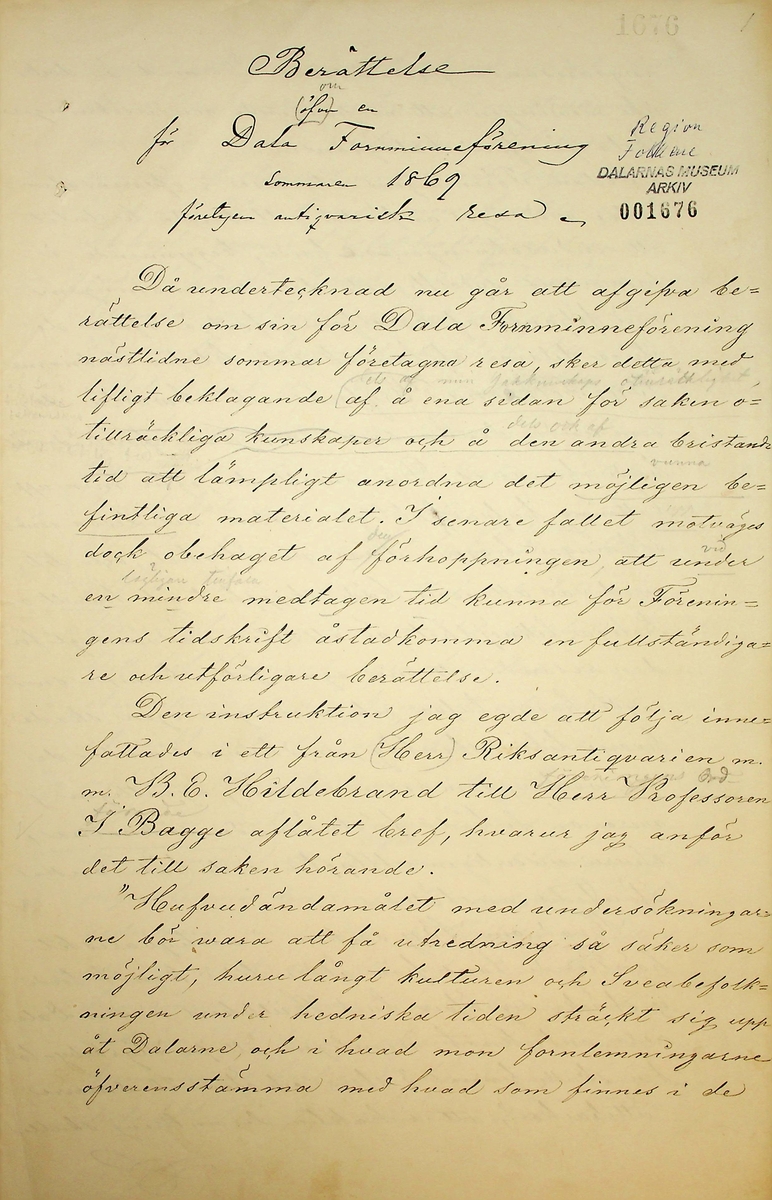 1676
Berättelse
om
(öfver) en
för Dala Fornminneförening
sommaren 1869
företagen antiqvarisk resa
Region
DALARNAS MUSEUM
ARKIV
001676
Då undertecknad nu går att afgifva be=
rättelse om sin för Dala Fornminneförening
nästlidne sommar företagna resa, sker detta med
lifligt beklagande af å ena sidan för saken o-
dels och af
tillräckliga kunskaper och å den andra bristande
vunna
tid att lämpligt anordna det möjligen be=
fintliga materialet. I senare fallet motväges
den
dock obehaget af förhoppningen att under
vid
en mindre medtagen tid kunna för Förenin=
gens tidskrift åstadkomma en fullständiga=
re och utförligare berättelse.
Den instruktion jag egde att följa inne=
fattades i ett från (Herr) Riksantiqvarien m.
m. B. E. Hildebrand till Herr Professoren
I Bagge aflåtet bref, hvarur jag anför
det till saken hörande.
"Hufvudändamålet med undersökningar=
ne bör wara att få utredning så säker som
möjligt, huru långt kulturen och Sveabefolk=
ningen under hedniska tiden sträckt sig upp
åt Dalarne, och i hvad mon fornlemningarne
öfverensstämma med hvad som finnes i de